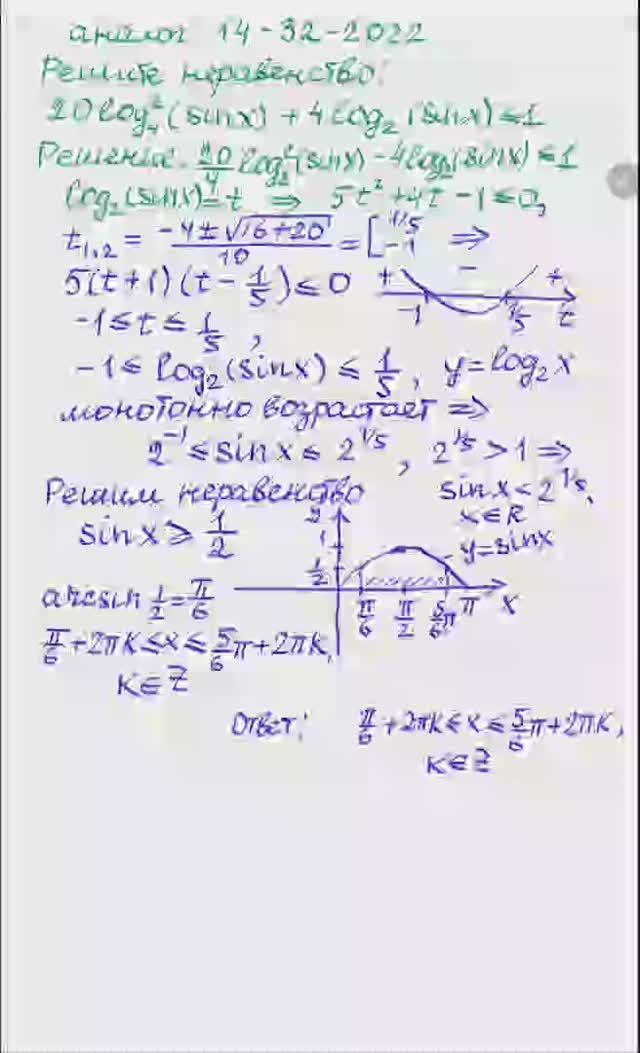 аналог 14-32-2022
Решите неравенство:
20log₄²(sinx) + 4log₂(sinx) ≤ 1
Решение. 20/4 log₂²(sinx) - 4log₂(sinx) ≤ 1
log₂(sinx) = t ⇒ 5t² + 4t - 1 ≤ 0,
t₁,₂ = (-4 ± √(16+20))/10 = [ 1/5 -1 ⇒
5(t+1)(t - 1/5) ≤ 0 + - + -1 1/5 t
-1 ≤ t ≤ 1/5,
-1 ≤ log₂(sinx) ≤ 1/5, y = log₂x
монотонно возрастает ⇒
2⁻¹ ≤ sinx ≤ 2^(1/5), 2^(1/5) > 1 ⇒
Решим неравенство sinx < 2^(1/5),
sinx ≥ 1/2 x ∈ R
y 1 1/2 y = sinx
π/6 π/2 5/6π π x
arcsin 1/2 = π/6
π/6 + 2πk ≤ x ≤ 5/6π + 2πk,
k ∈ Z
Ответ: π/6 + 2πk ≤ x ≤ 5/6π + 2πk,
k ∈ Z